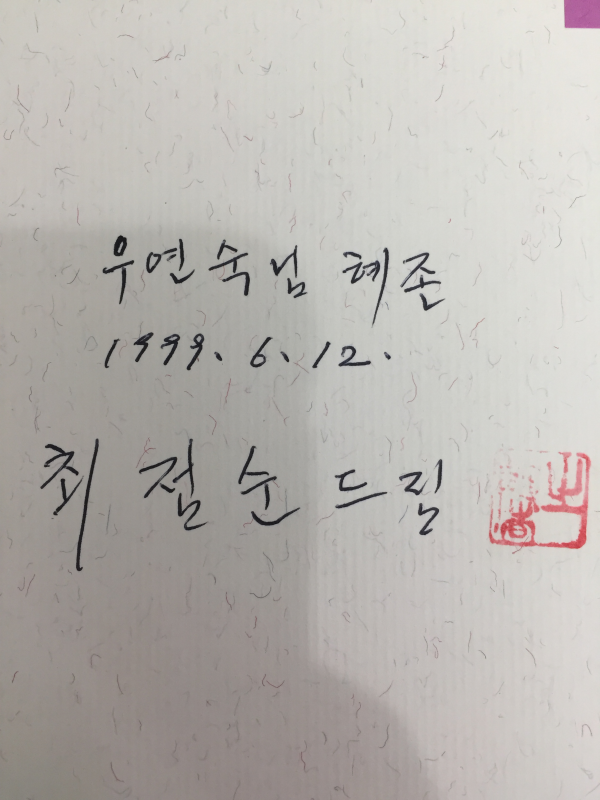 우연숙님 혜존
1999. 6. 12.
최점순 드림